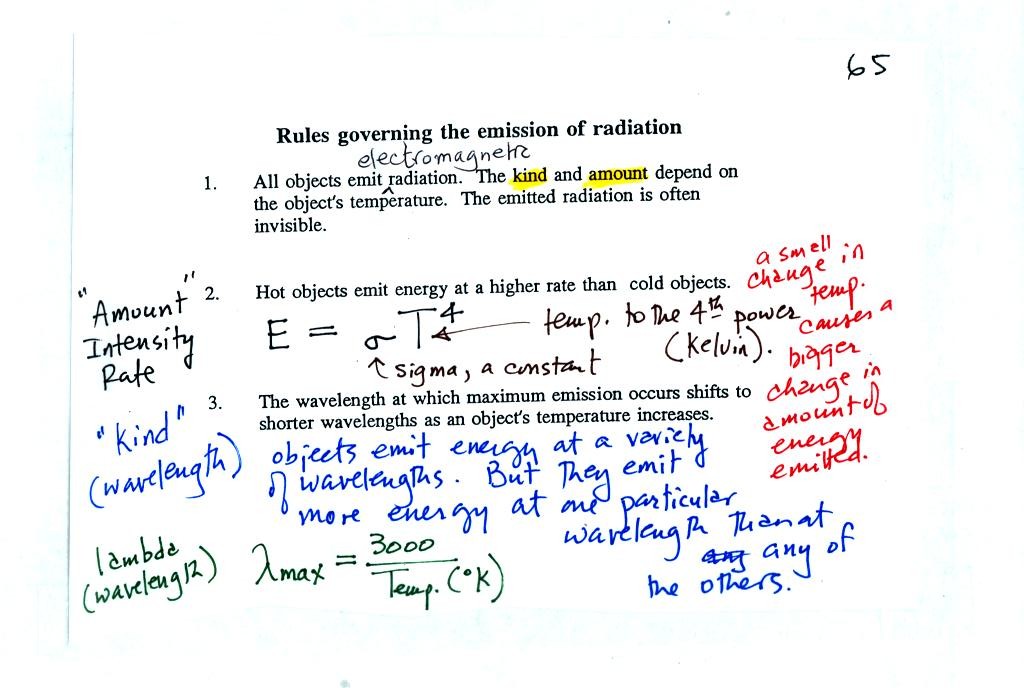 65
Rules governing the emission of radiation
electromagnetic
1. All objects emit radiation. The kind and amount depend on
the object's temperature. The emitted radiation is often
invisible.
"Amount"
Intensity
Rate
2. Hot objects emit energy at a higher rate than cold objects.
E = σT⁴
temp. to the 4th power
(Kelvin).
↑ sigma, a constant
a smell
change in
temp.
causes a
bigger
change in
amount of
energy
emitted.
"Kind"
(wavelength)
3. The wavelength at which maximum emission occurs shifts to
shorter wavelengths as an object's temperature increases.
objects emit energy at a variety
of wavelengths. But they emit
more energy at one particular
wavelength than at
any of
the others.
lambda
(wavelength)
λmax = 3000
Temp. (°K)